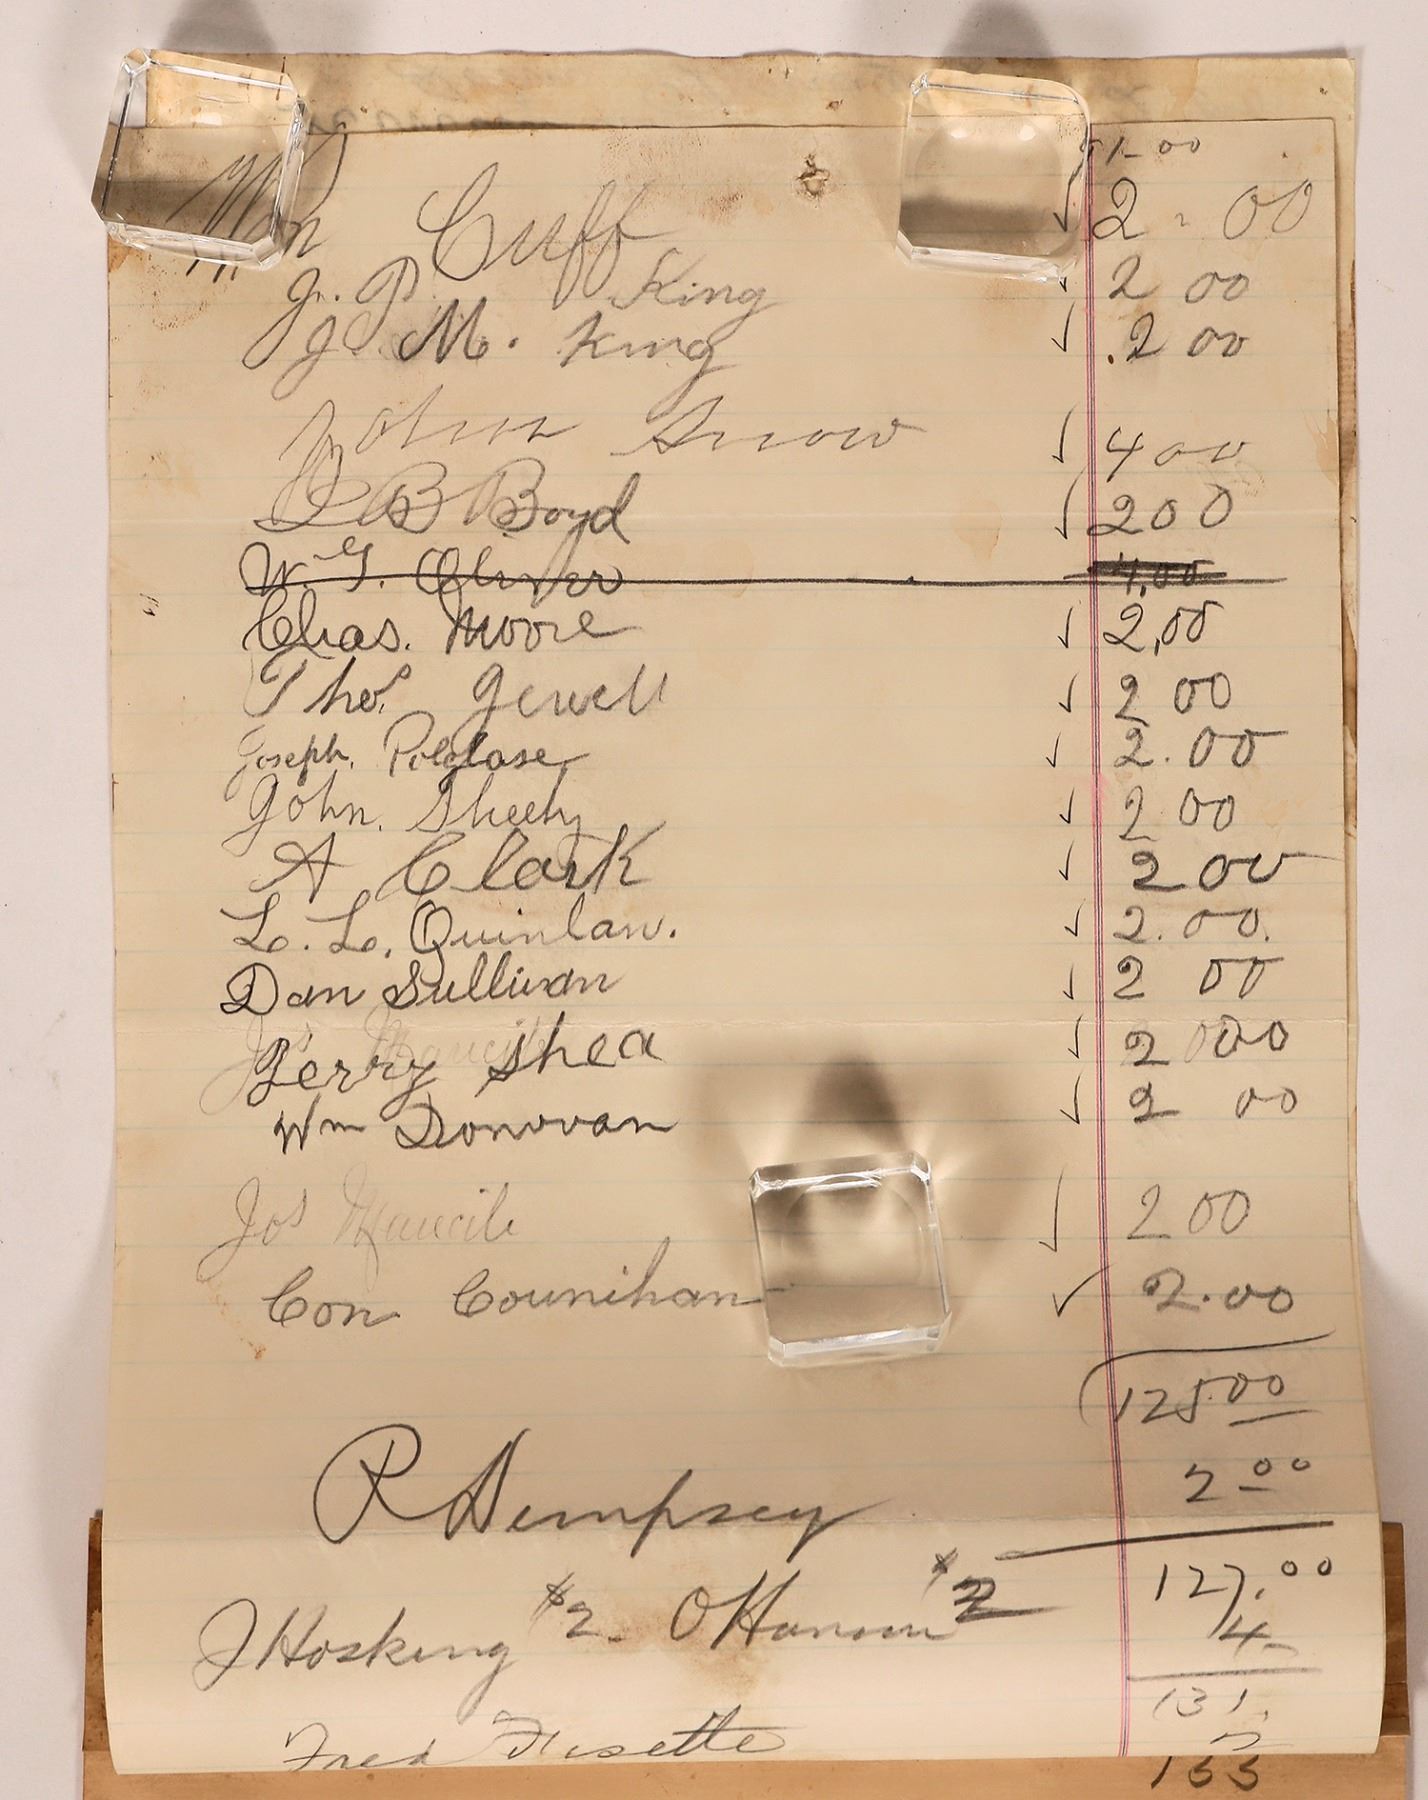 91.00
Wm Cuff 2.00
J. P. King 2 00
J. M. King 2 00
John Snow 4 00
D B Boyd 2 00
W. G. Oliver 4.00
Chas. Moore 2,00
Thos. Jewell 2 00
Joseph. Polglase 2.00
John. Sheehy 2 00
A Clark 2 00
L. L. Quinlan. 2.00.
Dan Sullivan 2 00
Jerry Shea 2 00
Wm Donovan 2 00
Jos 2 00
Con Counihan 2.00
125 00
R Dempsey 2 00
127.00
J Hosking $2. O Hanson $2 4
131.
Fred Fusette 2
133